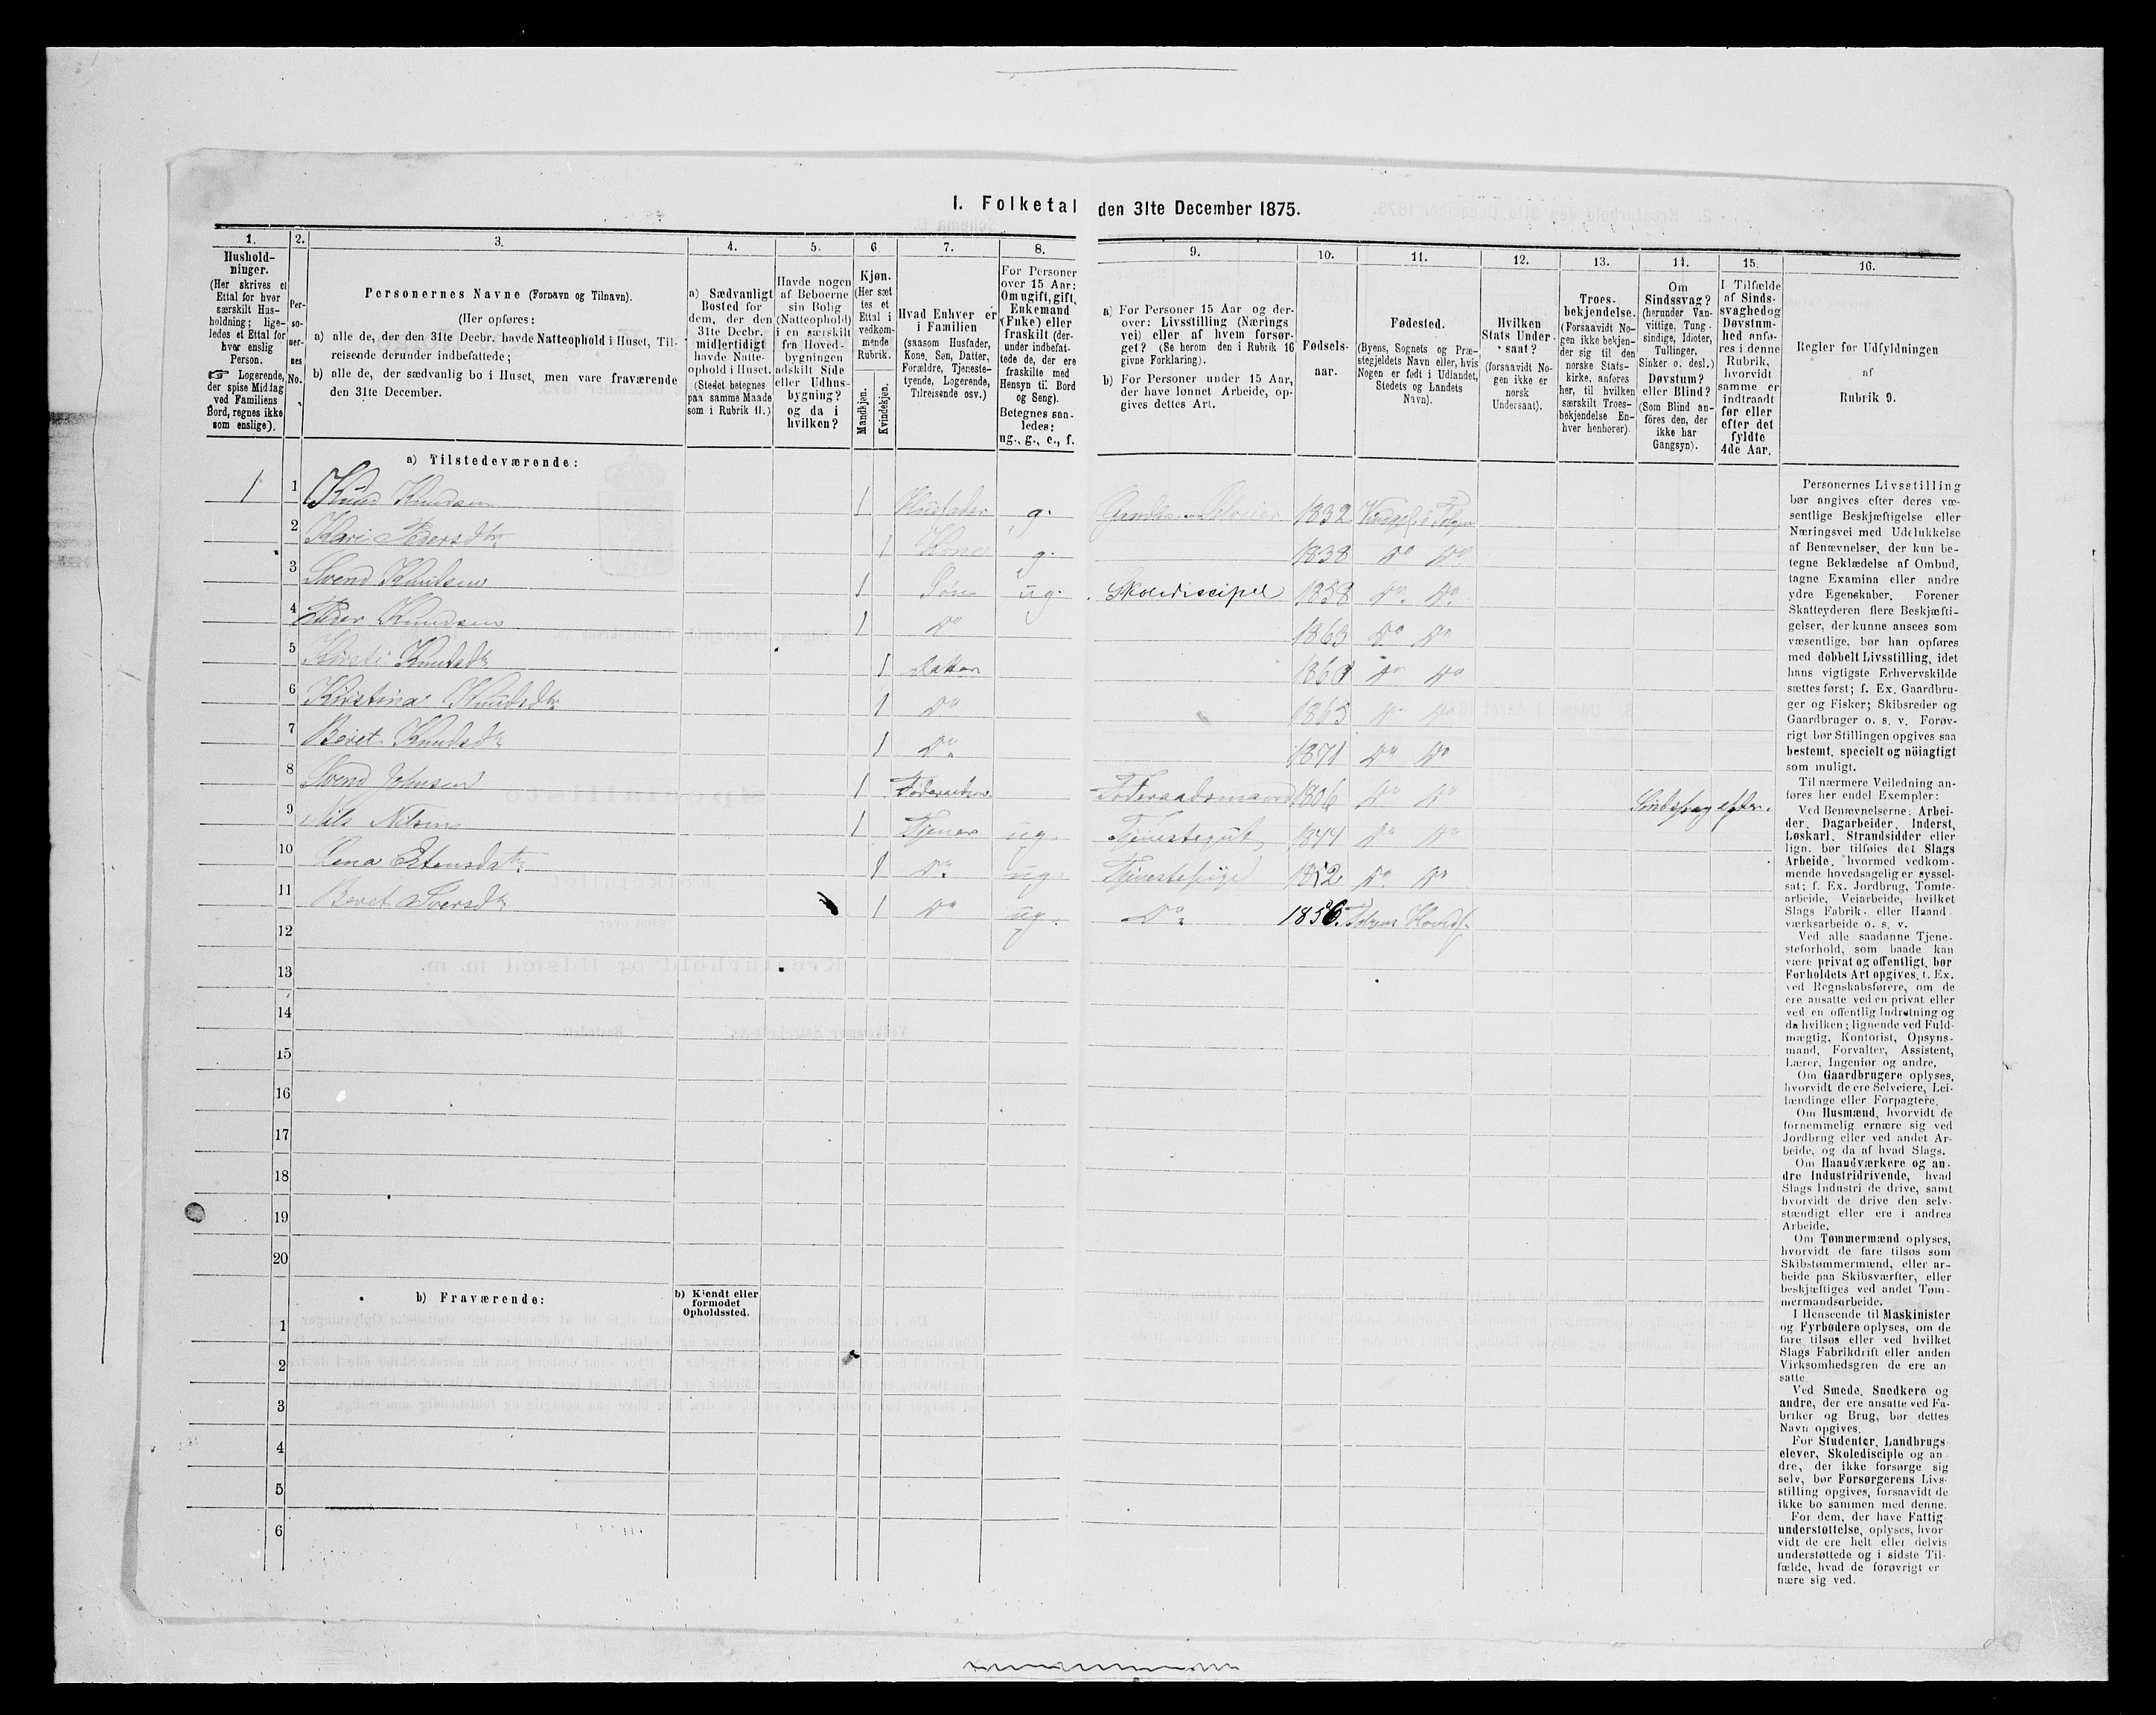 I. Folketal den 31te December 1875.
1.
2.
3.
4.
5.
6
7.
8.
9.
10.
11.
12.
13.
14.
15.
16.
Hushold-
ninger.
(Her skrives et
Ettal for hver
særskilt Hus-
holdning; lige-
ledes et Ettal for
hver enslig
Person.
☞ Logerende,
der spise Middag
ved Familiens
Bord, regnes ikke
som enslige).
Per-
so-
ner-
nes
No.
Personernes Navne (Fornavn og Tilnavn).
(Her opføres:
a) alle de, der den 31te Decbr. havde Natteophold i Huset, Til-
reisende derunder indbefattede;
b) alle de, der sædvanlig bo i Huset, men vare fraværende
den 31te December.
a) Sædvanligt
Bosted for
dem, der den
31te Decbr.
midlertidigt
havde Natte-
ophold i Huset.
(Stedet betegnes
paa samme Maade
som i Rubrik 11.)
Havde nogen
af Beboerne
sin Bolig
(Natteophold)
i en særskilt
fra Hoved-
bygningen
adskilt Side
eller Udhus-
bygning?
og da i
hvilken?
Kjøn.
(Her sæt
tes et
Ettal i
vedkom-
mende
Rubrik.
Mandkjøn.
Kvindekjøn.
Hvad Enhver er
i Familien
(saasom Husfader,
Kone, Søn, Datter,
Forældre, Tjeneste-
tyende, Logerende,
Tilreisende osv.)
For Personer
over 15 Aar:
Om ugift, gift,
Enkemand
(Enke) eller
fraskilt (der-
under indbefat-
tede de, der ere
fraskilte med
Hensyn til Bord
og Seng).
Betegnes saa-
ledes:
ug., g., e., f.
a) For Personer 15 Aar og der-
over: Livsstilling (Nærings
vei) eller af hvem forsør-
get? (Se herom den i Rubrik 16
givne Forklaring).
b) For Personer under 15 Aar,
der have lønnet Arbeide, op-
gives dettes Art.
Fødsels-
aar.
Fødested.
(Byens, Sognets og Præ-
stegjeldets Navn eller, hvis
Nogen er født i Udlandet,
Stedets og Landets
Navn).
Hvilken
Stats Under-
saat?
(forsaavidt No-
gen ikke er
norsk
Undersaat).
Troes-
bekjendelse.
(Forsaavidt No-
gen ikke bekjen-
der sig til den
norske Stats-
kirke, anføres
her, til hvilken
særskilt Troes-
bekjendelse En-
hver henhører).
Om
Sindssvag?
(herunder Van-
vittige, Tung-
sindige, Idioter,
Tullinger,
Sinker o. desl.)
Døvstum?
eller Blind?
(Som Blind an-
føres den, der
ikke har
Gangsyn).
I Tilfælde
af Sinds-
svaghed og
Døvstum-
hed anfø-
res i denne
Rubrik,
hvorvidt
samme er
indtraadt
før eller
efter det
fyldte
4de Aar.
Regler for Udfyldningen
af
Rubrik 9.
a) Tilstedeværende:
1 1 Knud Knudsen 1 Husfader g. 1832
2 Kari Pedersdtr 1 Kone g. 1838 Do Do
3 Svend Knudsen 1 Søn ug. Skolediscipel 1858 Do Do
4 Peder Knudsen 1 Do 1863 Do Do
5 Knudsdtr 1 Datter Do Do
6 Kristina Knudsdtr 1 Do Do Do
7 Beret Knudsdtr 1 Do 1871 Do Do
8 Svend Johnsen 1 Føderaadsmand 1806 Do Do Sindssvag efter.
9 Nils Nilsen 1 Tjener ug. Tjenestegut 1844 Do Do
10 Lena Estensdtr 1 Do ug Tjenestepige 1852 Do Do
11 Beret Iversdtr 1 Do ug. Do 1856. Tolgens Hoveds.
12
13
14
15
16
17
18
19
20
b) Fraværende:
b) Kjendt eller
formodet
Opholdssted.
1
2
3
4
5
6
Personernes Livsstilling
bør angives efter deres væ-
sentlige Beskjæftigelse eller
Næringsvei med Udelukkelse
af Benævnelser, der kun be-
tegne Beklædelse af Ombud,
tagne Examina eller andre
ydre Egenskaber. Forener
Skatteyderen flere Beskjæfti-
gelser, der kunne ansees som
væsentlige, bør han opføres
med dobbelt Livsstilling, idet
hans vigtigste Erhvervskilde
sættes først; f. Ex. Gaardbru-
ger og Fisker; Skibsreder og
Gaardbruger o. s. v. Forøv-
rigt bør Stillingen opgives saa
bestemt, specielt og nöiagtigt
som muligt.
Til nærmere Veiledning an-
føres her endel Exempler:
Ved Benævnelserne: Arbei-
der, Dagarbeider, Inderst,
Løskarl, Strandsidder eller
lign. bør tilføies det Slags
Arbeide, hvormed vedkom-
mende hovedsagelig er syssel-
sat; f. Ex. Jordbrug, Tomte-
arbeide, Veiarbeide, hvilket
Slags Fabrik- eller Haand-
værksarbeide o. s. v.
Ved alle saadanne Tjene-
steforhold, som baade kan
være privat og offentligt, bør
Forholdets Art opgives, f. Ex.
ved Regnskabsførere, om de
ere ansatte ved en privat eller
ved en offentlig Indretning og
da hvilken; lignende ved Fuld-
mægtig, Kontorist, Opsyns-
mand, Forvalter, Assistent,
Lærer, Ingeniør og andre.
Om Gaardbrugere oplyses,
hvorvidt de ere Selveiere, Lei-
lændinge eller Forpagtere.
Om Husmænd, hvorvidt de
fornemmelig ernære sig ved
Jordbrug eller ved andet Ar-
beide, og da af hvad Slags.
Om Haandværkere og an-
dre Industridrivende, hvad
Slags Industri de drive, samt
hvorvidt de drive den selv-
stændigt eller ere i andres
Arbeide.
Om Tømmermænd oplyses,
hvorvidt de fare tilsøs som
Skibstømmermænd, eller ar-
beide paa Skibsværfter, eller
beskjæftiges ved andet Tøm-
mermandsarbeide.
I Henseende til Maskinister
og Fyrbødere oplyses, om de
fare tilsøs eller ved hvilket
Slags Fabrikdrift eller anden
Virksomhedsgren de ere an
satte.
Ved Smede, Snedkere og
andre, der ere ansatte ved Fa-
briker og Brug, bør dettes
Navn opgives.
For Studenter, Landbrugs
elever, Skoledisciple og an-
dre, der ikke forsørge sig
selv, bør Forsørgerens Livs-
stilling opgives, forsaavidt de
ikke bo sammen med denne.
For dem, der have Fattig
understøttelse, oplyses, hvor
vidt de ere helt eller delvis
understøttede og i sidste Til-
fælde, hvad de forøvrigt er
nære sig ved.